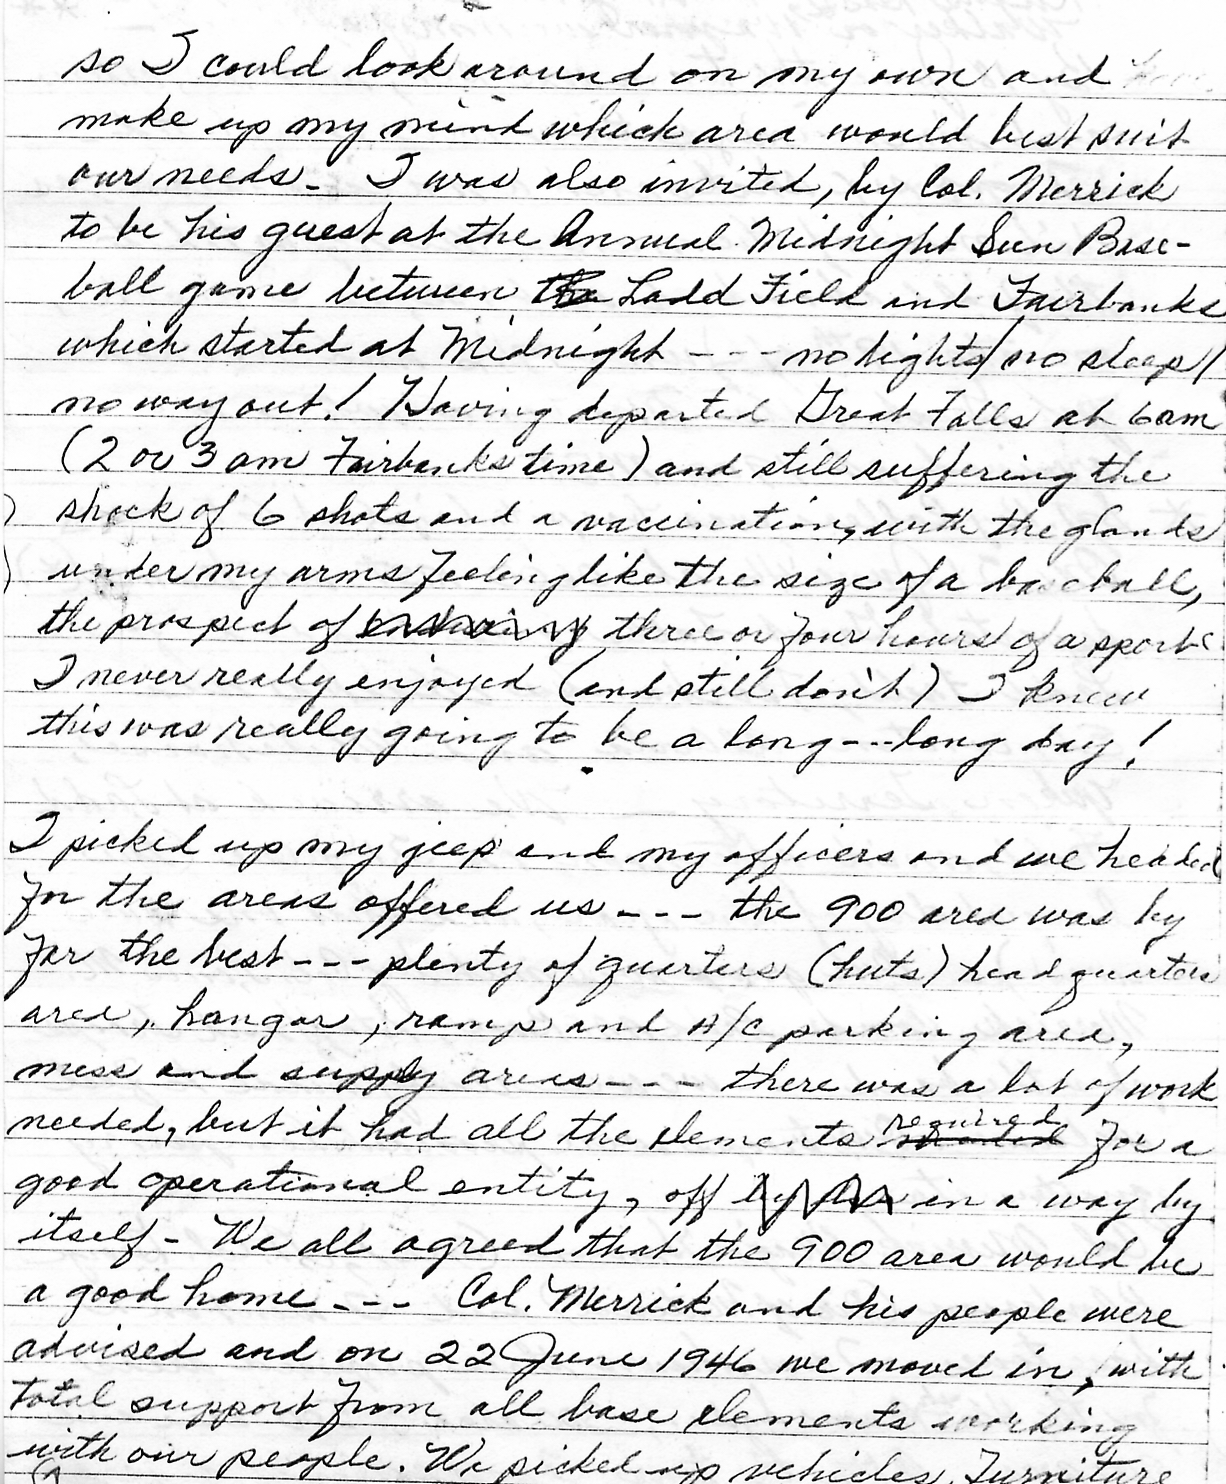 so I could look around on my own and
make up my mind which area would best suit
our needs - I was also invited, by Col. Merrick
to be his guest at the Annual Midnight Sun Base-
ball game between the Ladd Field and Fairbanks
which started at Midnight - - - no lights/ no sleep/
no way out! Having departed Great Falls at 6am
(2 or 3 am Fairbanks time) and still suffering the
shock of 6 shots and a vaccination, with the glands
under my arms feeling like the size of a baseball,
the prospect of three or four hours of a sport
I never really enjoyed (and still don't) I knew
this was really going to be a long - - - long day!
I picked up my jeep and my officers and we headed
for the areas offered us - - - the 900 area was by
far the best - - - plenty of quarters (huts) headquarters
area, hangar, ramp and A/C parking area,
mess and supply areas - - - there was a lot of work
required
needed, but it had all the elements for a
good operational entity, off in a way by
itself - We all agreed that the 900 area would be
a good home - - - Col. Merrick and his people were
advised and on 22 June 1946 we moved in, with
total support from all base elements working
with our people. We picked up vehicles, Furniture